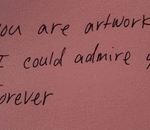 you are artwork
I could admire
forever